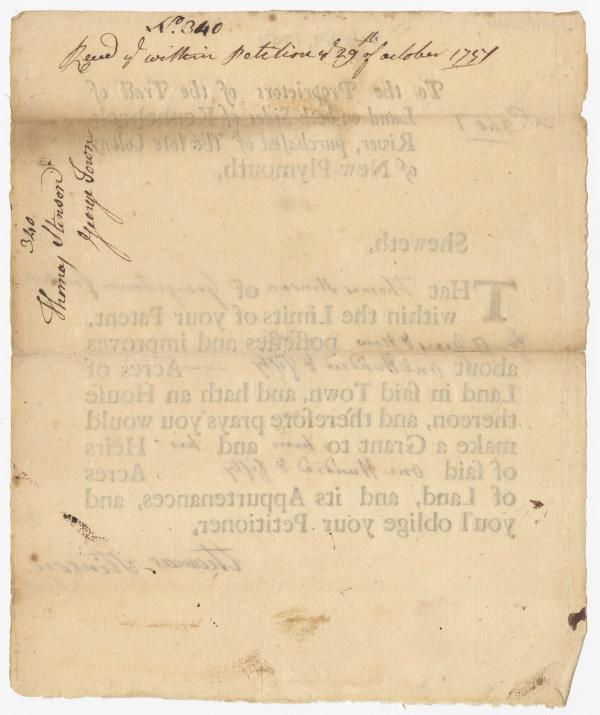 No. 340
Recd ye within Petition ye 29th of october 1751
340
Thomas Stinson
George Town
To the Proprietors of the Tract of
Land on both Sides of Kennebeck
River, purchased of the late Colony
of New-Plymouth,
Sheweth,
THat Thomas Stinson of Georgetown
within the Limits of your Patent,
possesses and improves
about one Hundred & fifty Acres of
Land in said Town, and hath an House
thereon, and therefore prays you would
make a Grant to him and his Heirs
of said one Hundrd & fifty Acres
of Land, and its Appurtenances, and
you'l oblige your Petitioner,
Thomas Stinson